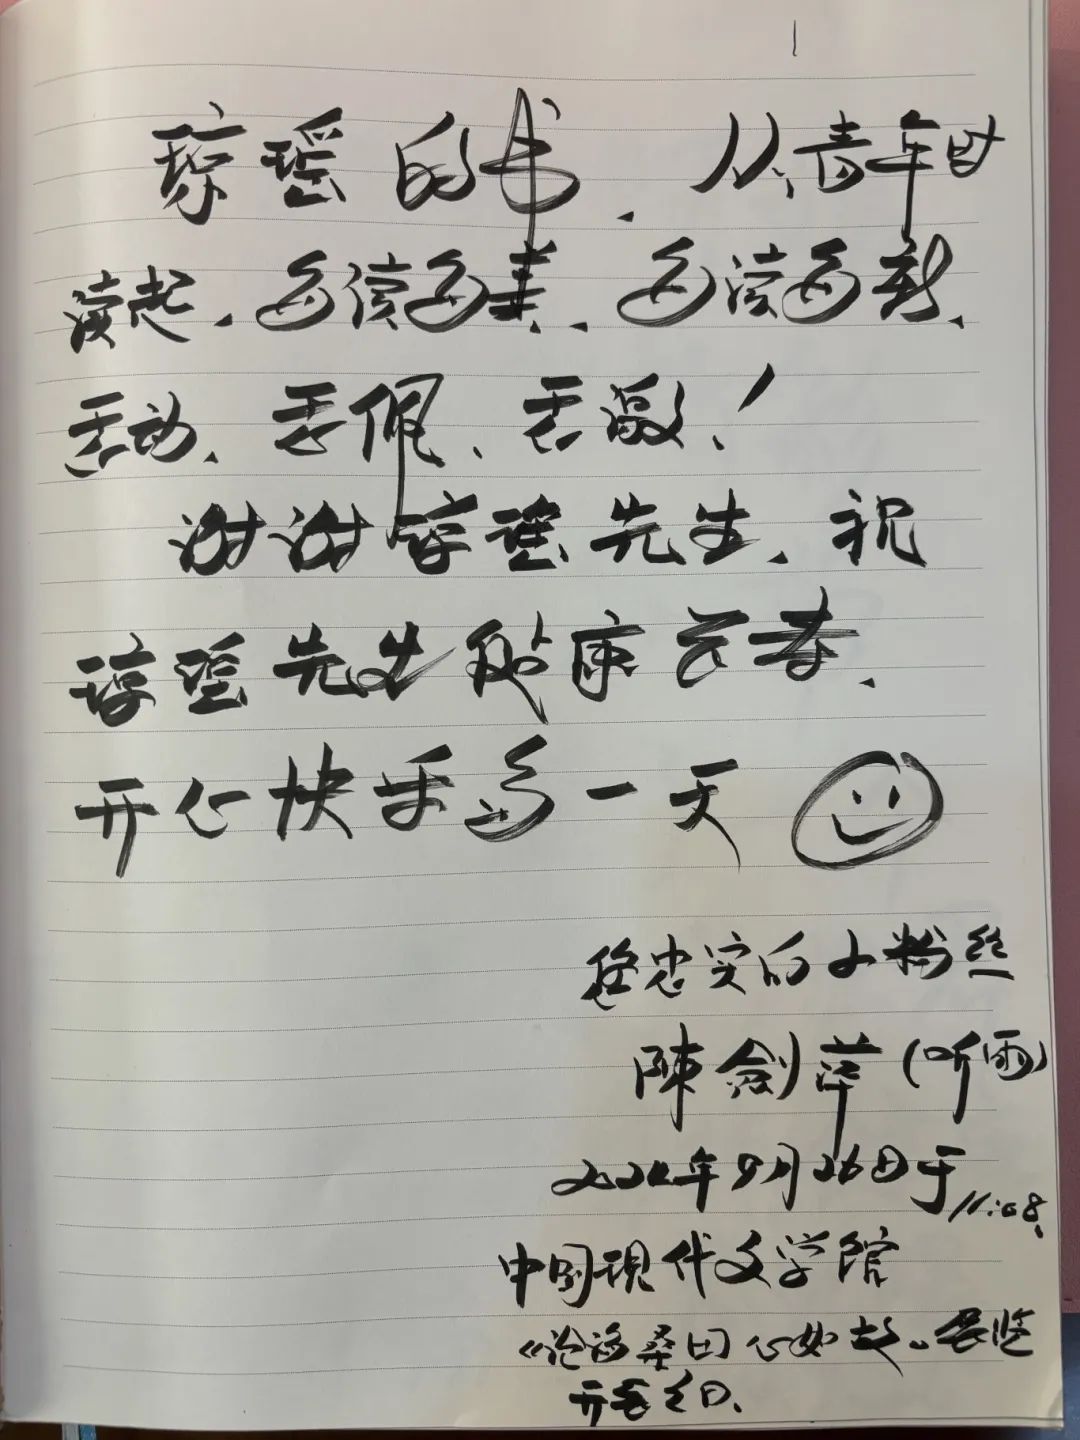 1
琼瑶的书、从青年时
读起、每读每美、每读每新、
感动、感佩、感激！
谢谢琼瑶先生、祝
琼瑶先生健康长寿、
开心快乐每一天
您忠实的小粉丝
陳劍萍(听雨)
2024年9月26日于
11:08、
中国现代文学馆
《沧海桑田心如故》展览
开幕之日、